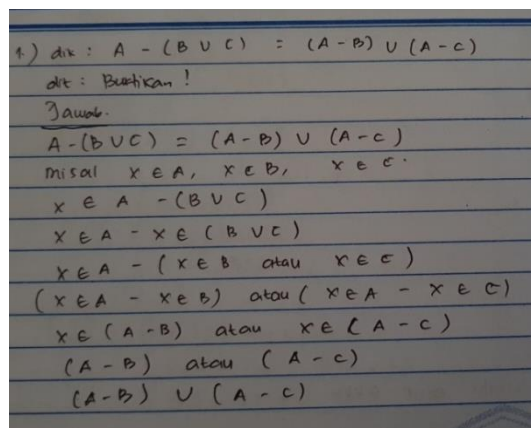 1) dik : A - (B ∪ C) = (A - B) ∪ (A - C)
dit : Buktikan !
Jawab.
A - (B ∪ C) = (A - B) ∪ (A - C)
misal x ∈ A, x ∈ B, x ∈ C.
x ∈ A - (B ∪ C)
x ∈ A - x ∈ (B ∪ C)
x ∈ A - (x ∈ B atau x ∈ C)
(x ∈ A - x ∈ B) atau (x ∈ A - x ∈ C)
x ∈ (A - B) atau x ∈ (A - C)
(A - B) atau (A - C)
(A - B) ∪ (A - C)